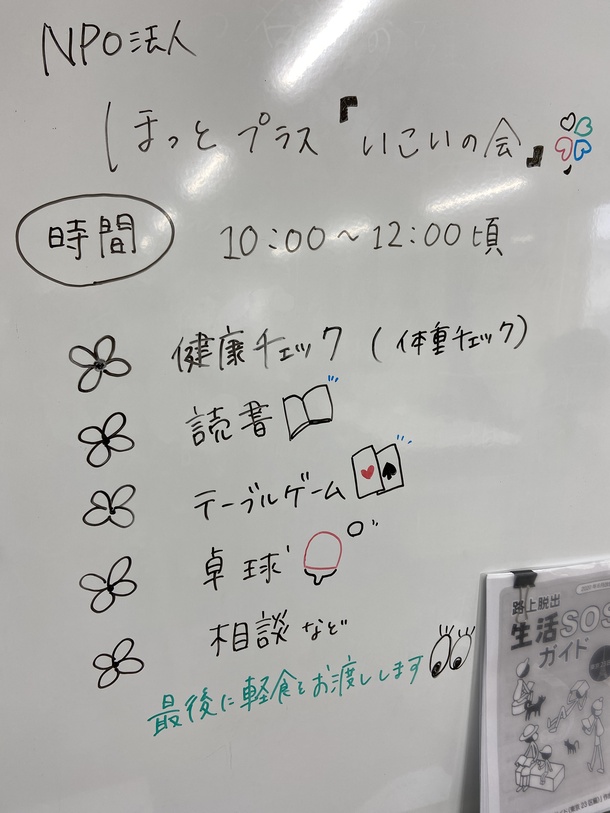 NPO法人
ほっとプラス『いこいの会』
時間 10:00～12:00頃
健康チェック (体重チェック)
読書
テーブルゲーム
卓球
相談など
最後に軽食をお渡しします
路上脱出
生活SOS
ガイド